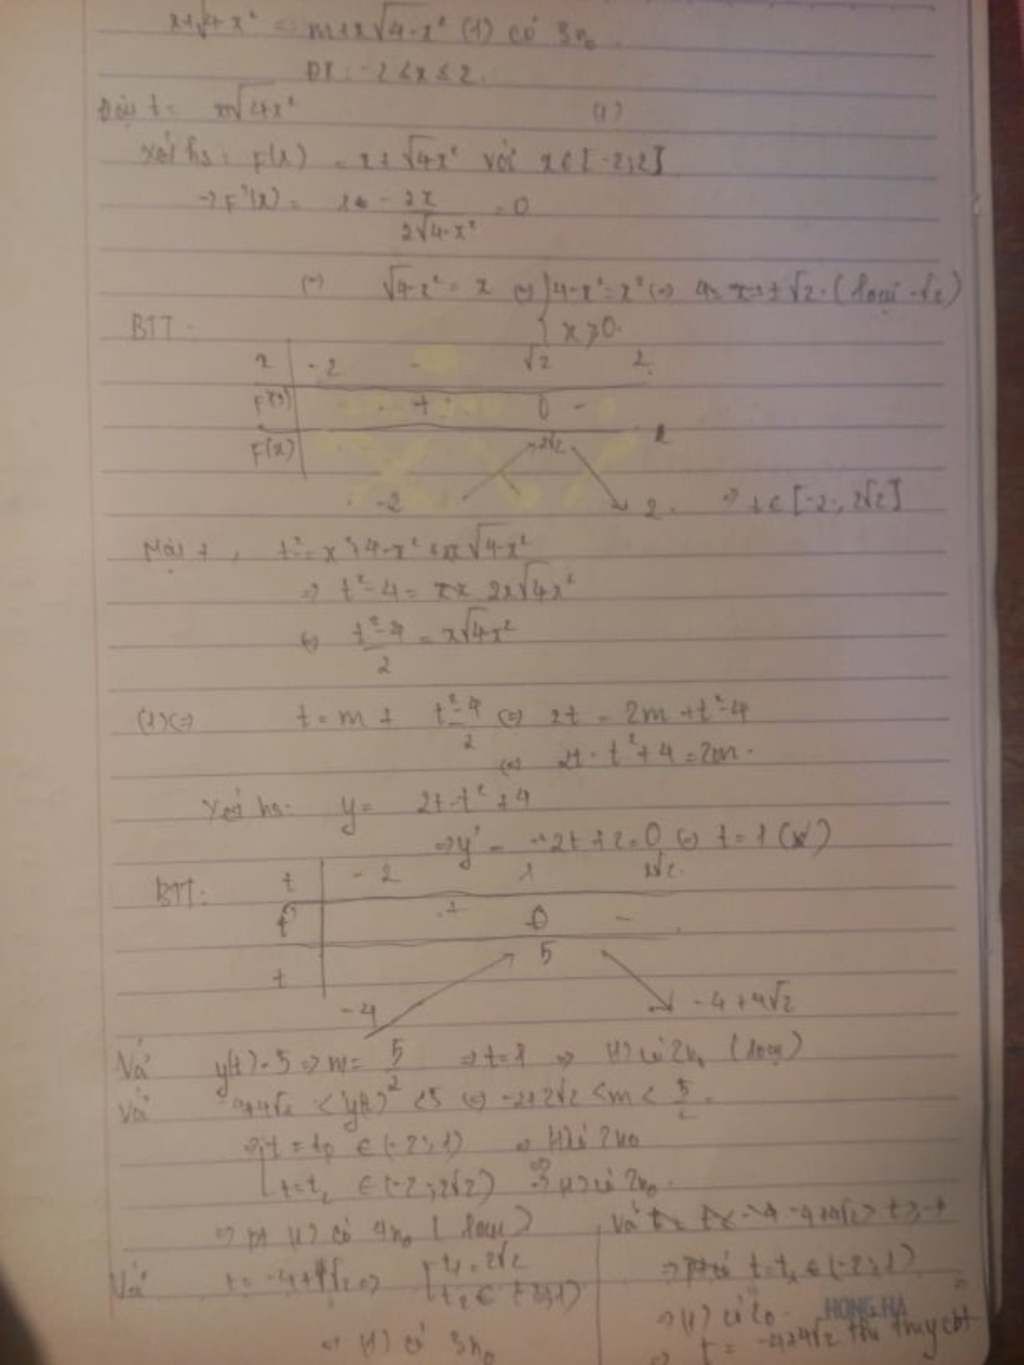 x+√4-x² = m+x√4-x² (1) có 3n₀
ĐK: -2 ≤ x ≤ 2
Đặt t = x√4-x² (1)
Xét hs: F(x) = x+√4-x² với x∈[-2;2]
→F'(x) = - 2x / 2√4-x² = 0
(=) √4-x² = x (=) { 4-x²=x² (=) x=±√2 (loại -√2)
x≥0.
BTT:
x -2 √2 2
F'(x) + 0 -
F(x) 2√2
-2 2 ⇒ t∈[-2;2√2]
Mặt t, t² = x²+4-x²+2x√4-x²
⇒ t²-4 = 2x√4-x²
(=) t²-4 / 2 = x√4-x²
(1)(=) t = m + t²-4 / 2 (=) 2t = 2m+t²-4
(=) 2t-t²+4 = 2m.
Xét hs: y = 2t-t²+4
⇒y' = -2t+2=0 (=) t=1
BTT: t -2 1 2√2
t' + 0 -
t 5
-4 -4+4√2
Với y(t)=5 ⇒ m = 5/2 ⇒ t=1 ⇒ (1) có 2n₀ (loại)
Với -4+4√2 < y(t) < 5 (=) -2+2√2 < m < 5/2
⇒ [ t = t₁ ∈ (-2;1) ⇒ (1) có 2n₀
t=t₂ ∈ (-2;2√2) ⇒ (1) có 2n₀
⇒ pt (1) có 4n₀ (loại) Với -4+4√2 > t ≥ -4
⇒ t=t₁ ∈ (-2;1)
Với t = -4+4√2 ⇒ [ t₁=2√2
t₂ ∈ (-2;1)
⇒ (1) có
HONG HA
⇒ (1) có 3n₀
⇒ t = -4+4√2 thì